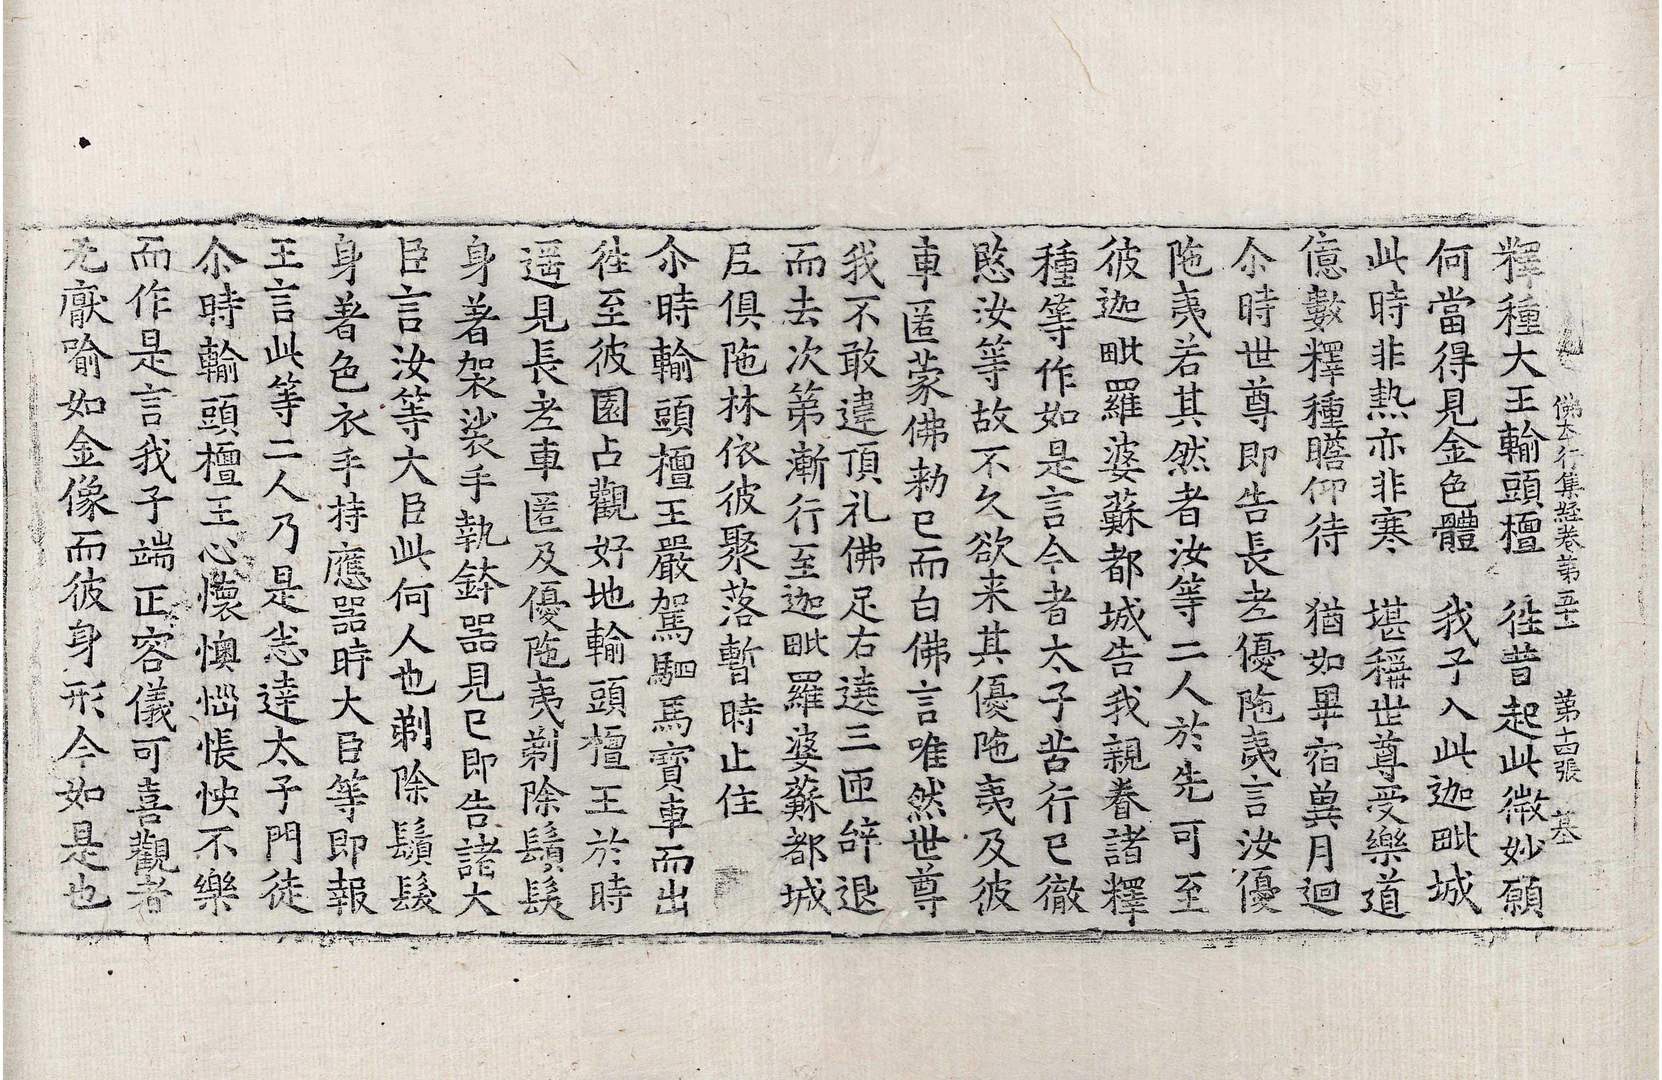 佛本行集經卷第五十一 第十四張 墓
釋種大王輸頭檀 徃昔起此微妙願
何當得見金色體 我子入此迦毗城
此時非熱亦非寒 堪稱世尊受樂道
億數釋種瞻仰待 猶如畢宿㒷月迴
尒時世尊即告長老優陁夷言汝優
陁夷若其然者汝等二人於先可至
彼迦毗羅婆蘇都城告我親眷諸釋
種等作如是言今者太子苦行已徹
愍汝等故不久欲来其優陁夷及彼
車匿蒙佛勑已而白佛言唯然世尊
我不敢違頂礼佛足右遶三匝辝退
而去次第漸行至迦毗羅婆蘇都城
尼俱陁林依彼聚落暫時止住
尒時輸頭檀王嚴駕駟馬寶車而出
徃至彼園占觀好地輸頭檀王於時
遥見長老車匿及優陁夷剃除鬚髮
身著袈裟手執鉢器見已即告諸大
臣言汝等大臣此何人也剃除鬚髮
身著色衣手持應器時大臣等即報
王言此等二人乃是悉達太子門徒
尒時輸頭檀王心懷懊惱悵怏不樂
而作是言我子端正容儀可喜觀者
无厭喻如金像而彼身形今如是也